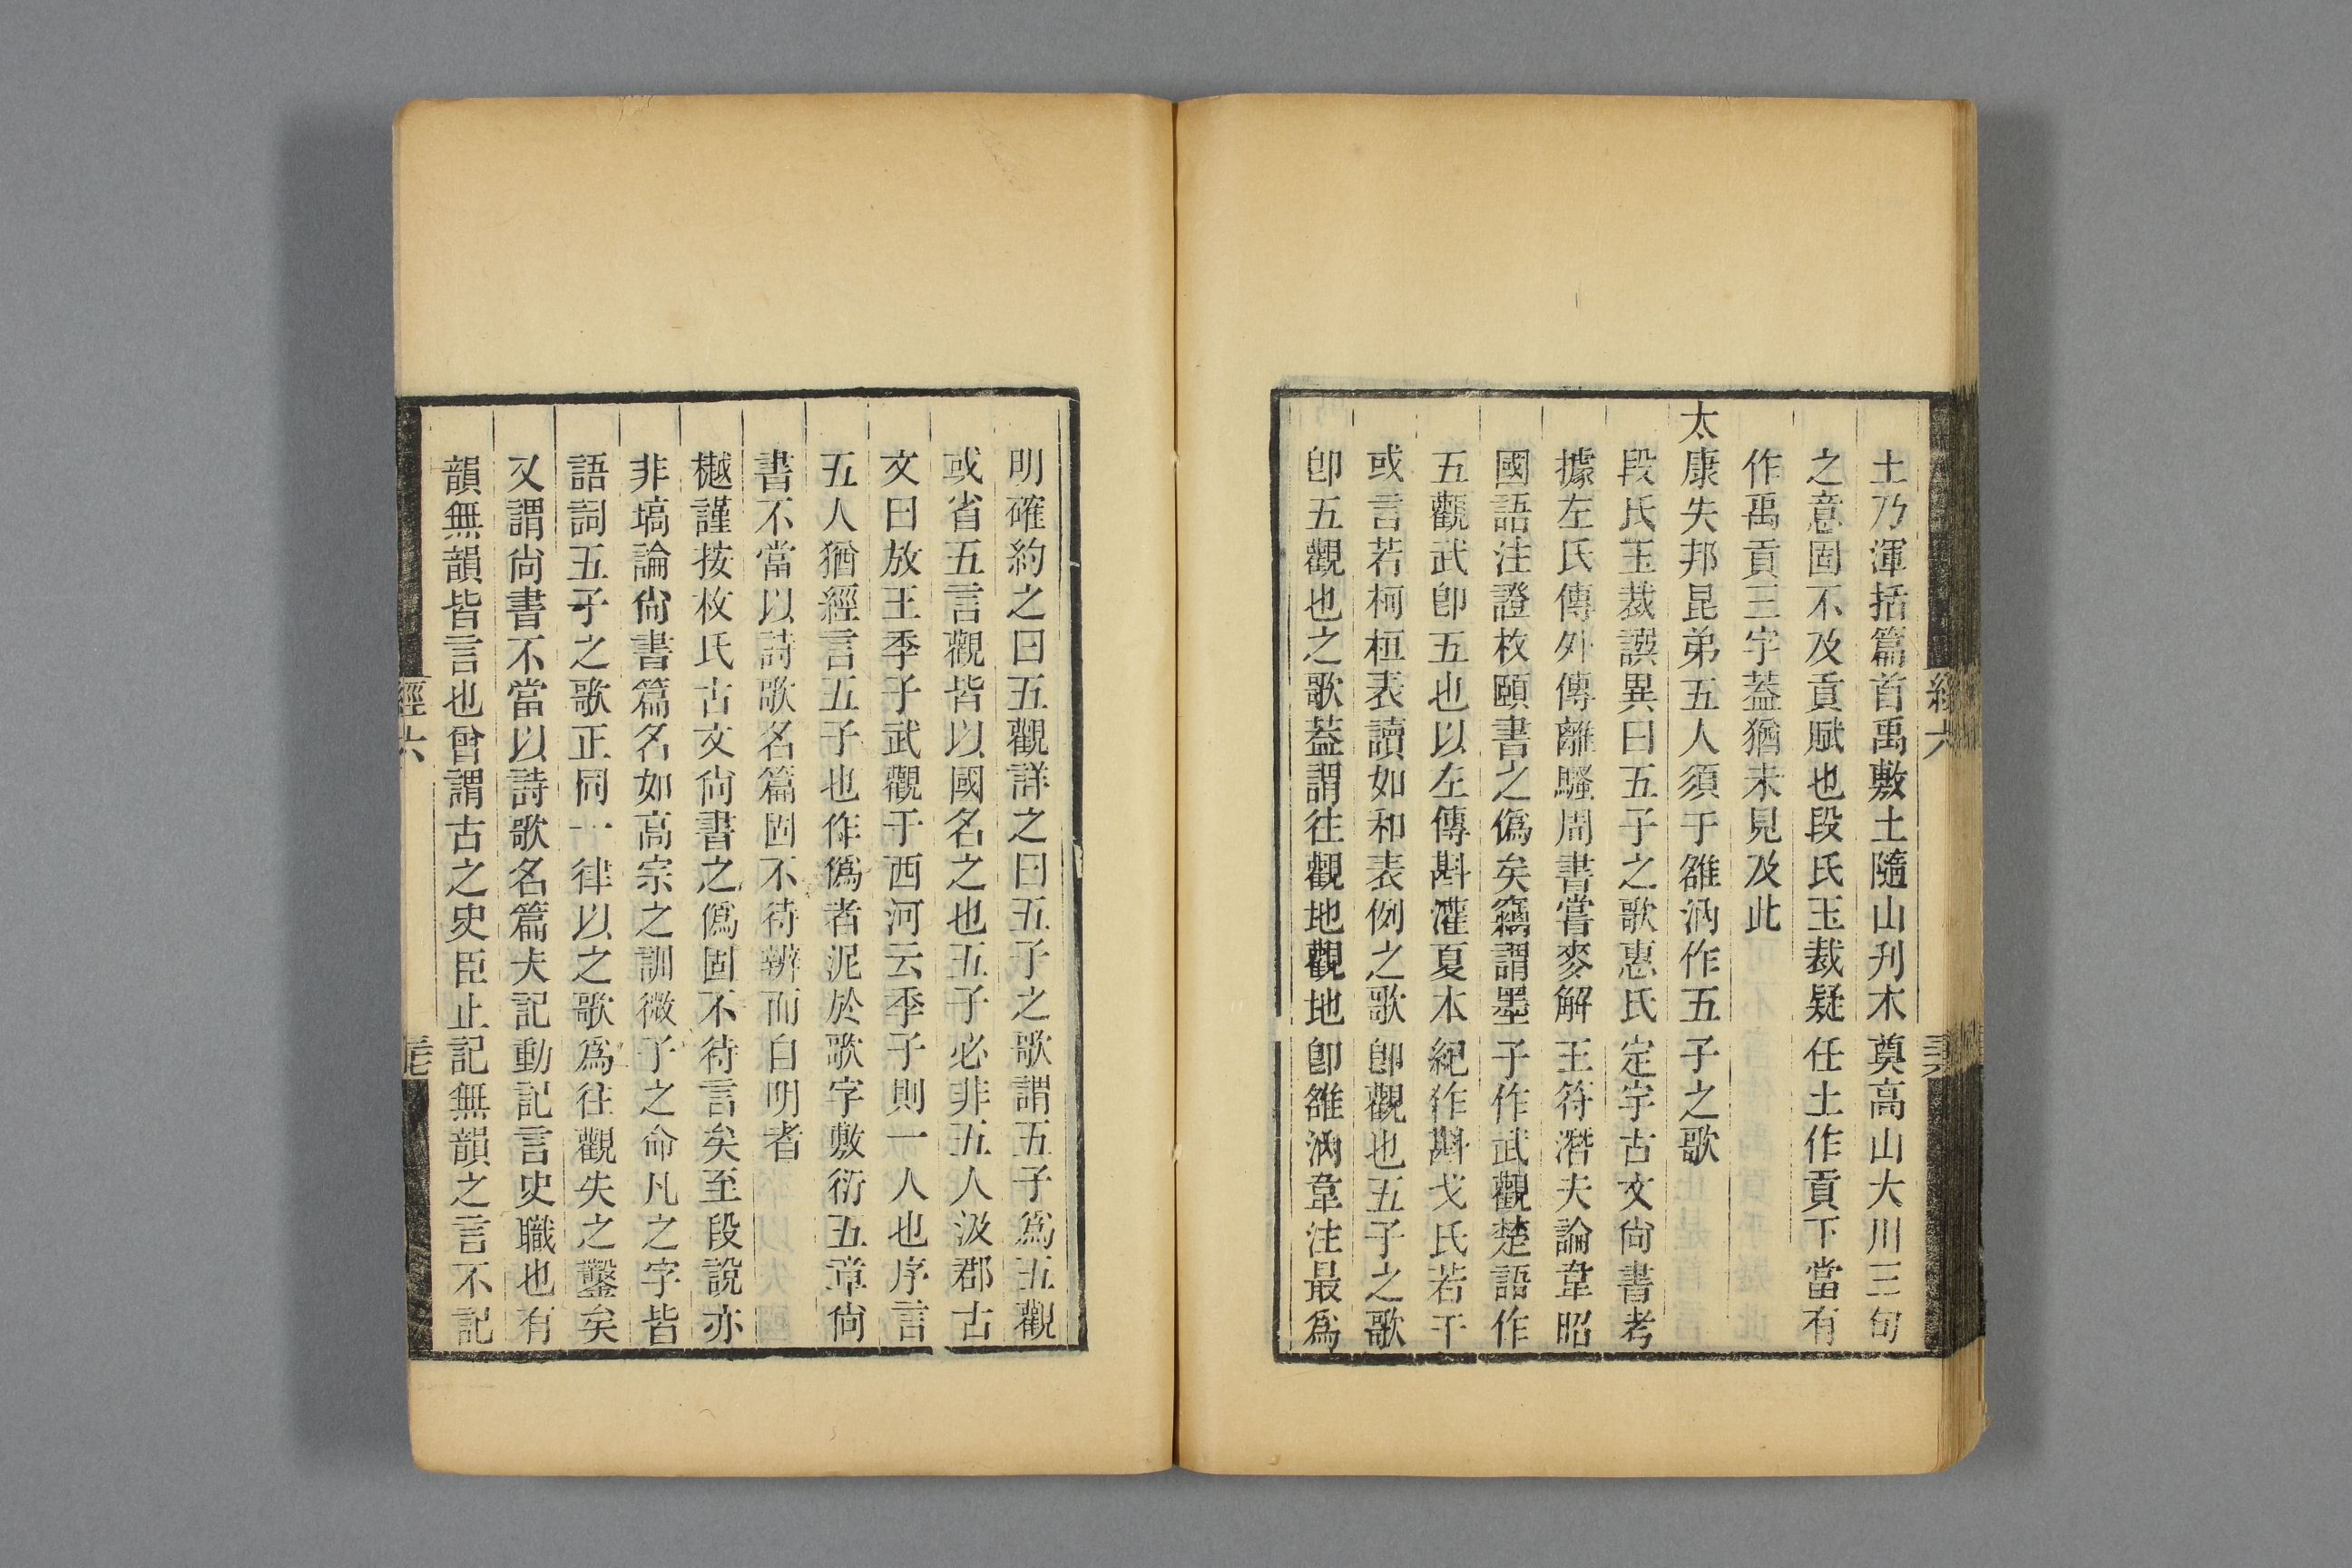 土乃渾括篇首禹敷土隨山刋木奠高山大川三句
之意固不及貢賦也段氏玉裁疑任土作貢下當有
作禹貢三字葢猶未見及此
太康失邦昆弟五人須于雒汭作五子之歌
段氏玉裁譔異曰五子之歌惠氏定宇古文尙書考
據左氏傳外傳離騷周書嘗麥解王符潛夫論韋昭
國語注證枚頤書之僞矣竊謂墨子作武觀楚語作
五觀武卽五也以左傳斟灌夏本紀作斟戈氏若干
或言若柯桓表讀如和表例之歌卽觀也五子之歌
卽五觀也之歌葢謂往觀地觀地卽雒汭韋注最爲
明確約之曰五觀詳之曰五子之歌謂五子爲五觀
或省五言觀皆以國名之也五子必非五人汲郡古
文曰放王季子武觀于西河云季子則一人也序言
五人猶經言五子也作僞者泥於歌字敷衍五章尙
書不當以詩歌名篇固不待辨而自明者
樾謹按枚氏古文尙書之僞固不待言矣至段說亦
非塙論尙書篇名如高宗之訓微子之命凡之字皆
語詞五子之歌正同一律以之歌爲往觀失之鑿矣
又謂尙書不當以詩歌名篇夫記動記言史職也有
韻無韻皆言也曾謂古之史臣止記無韻之言不記
經六